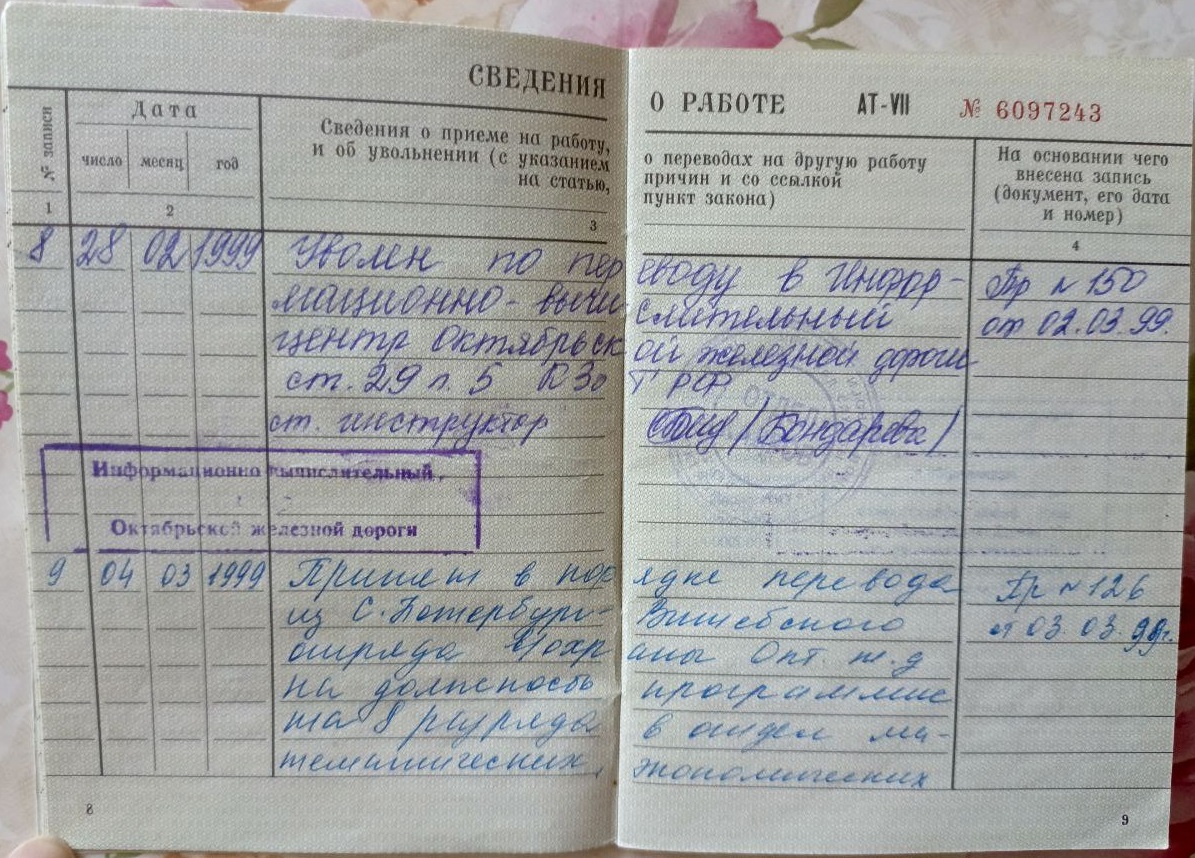 СВЕДЕНИЯ О РАБОТЕ АТ-VII № 6097243
№ записи
Дата
число месяц год
Сведения о приеме на работу, о переводах на другую работу
и об увольнении (с указанием причин и со ссылкой
на статью, пункт закона)
На основании чего
внесена запись
(документ, его дата
и номер)
1 2 3 4
8 28 02 1999 Уволен по переводу в Инфор- Пр № 150
мационно-вычислительный от 02.03.99.
центр Октябрьской железной дороги
ст. 29 п. 5 КЗоТ РФ
ст. инструктор /Бондарева/
Информационно вычислительный
Октябрьской железной дороги
9 04 03 1999 Принят в порядке перевода Пр № 126
из С. Петербург- Витебского от 03.03.99г.
отряда Вохраны Окт. ж.д
на должность программис
та 8 разряда в отдел ма-
тематических, экономических
8
9